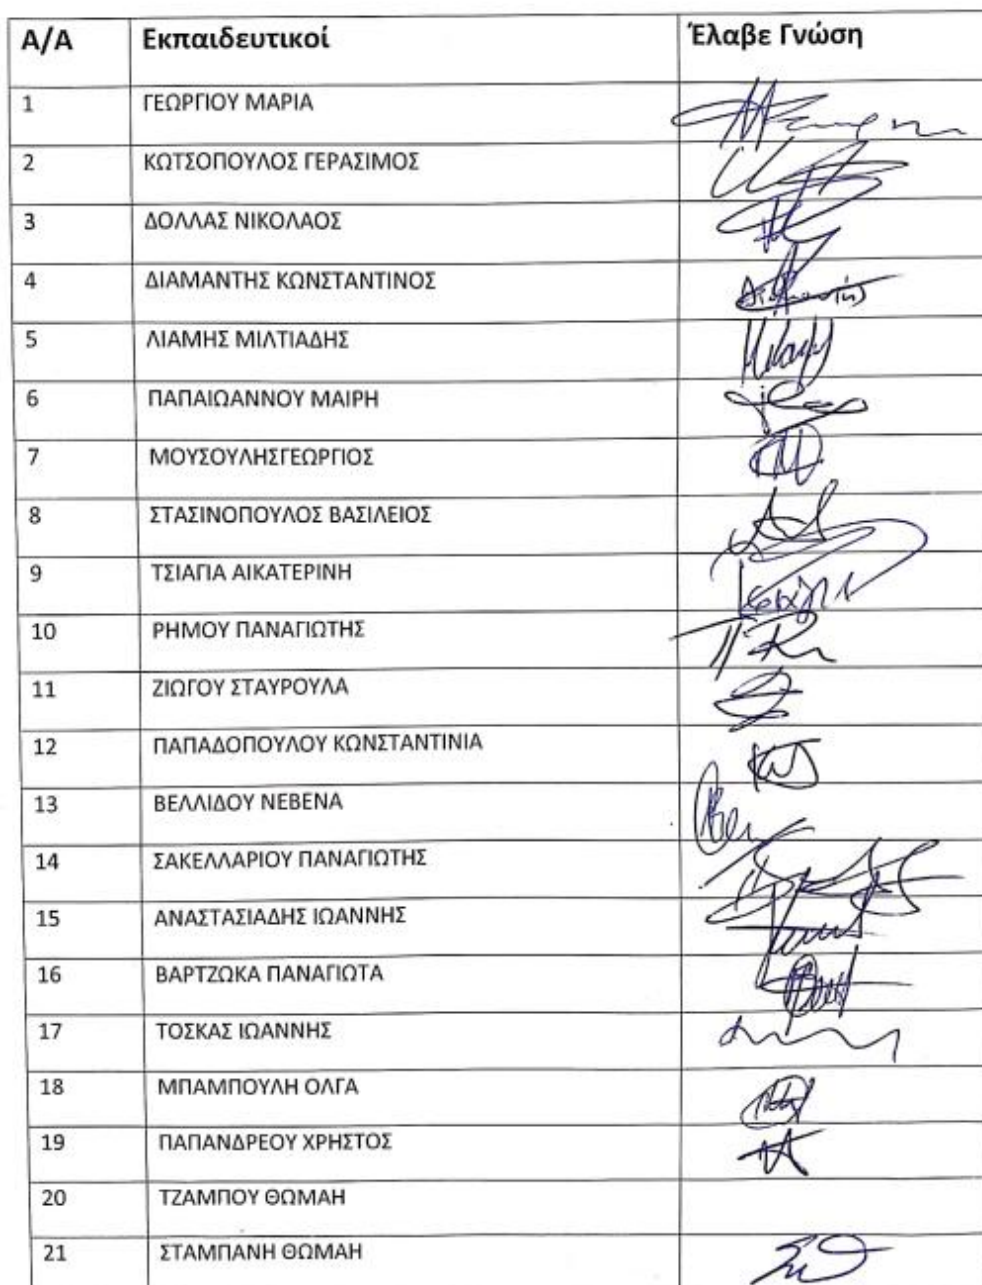 Α/Α Εκπαιδευτικοί Έλαβε Γνώση
1 ΓΕΩΡΓΙΟΥ ΜΑΡΙΑ
2 ΚΩΤΣΟΠΟΥΛΟΣ ΓΕΡΑΣΙΜΟΣ
3 ΔΟΛΛΑΣ ΝΙΚΟΛΑΟΣ
4 ΔΙΑΜΑΝΤΗΣ ΚΩΝΣΤΑΝΤΙΝΟΣ
5 ΛΙΑΜΗΣ ΜΙΛΤΙΑΔΗΣ
6 ΠΑΠΑΙΩΑΝΝΟΥ ΜΑΙΡΗ
7 ΜΟΥΣΟΥΛΗΣΓΕΩΡΓΙΟΣ
8 ΣΤΑΣΙΝΟΠΟΥΛΟΣ ΒΑΣΙΛΕΙΟΣ
9 ΤΣΙΑΓΙΑ ΑΙΚΑΤΕΡΙΝΗ
10 ΡΗΜΟΥ ΠΑΝΑΓΙΩΤΗΣ
11 ΖΙΩΓΟΥ ΣΤΑΥΡΟΥΛΑ
12 ΠΑΠΑΔΟΠΟΥΛΟΥ ΚΩΝΣΤΑΝΤΙΝΙΑ
13 ΒΕΛΛΙΔΟΥ ΝΕΒΕΝΑ
14 ΣΑΚΕΛΛΑΡΙΟΥ ΠΑΝΑΓΙΩΤΗΣ
15 ΑΝΑΣΤΑΣΙΑΔΗΣ ΙΩΑΝΝΗΣ
16 ΒΑΡΤΖΩΚΑ ΠΑΝΑΓΙΩΤΑ
17 ΤΟΣΚΑΣ ΙΩΑΝΝΗΣ
18 ΜΠΑΜΠΟΥΛΗ ΟΛΓΑ
19 ΠΑΠΑΝΔΡΕΟΥ ΧΡΗΣΤΟΣ
20 ΤΖΑΜΠΟΥ ΘΩΜΑΗ
21 ΣΤΑΜΠΑΝΗ ΘΩΜΑΗ